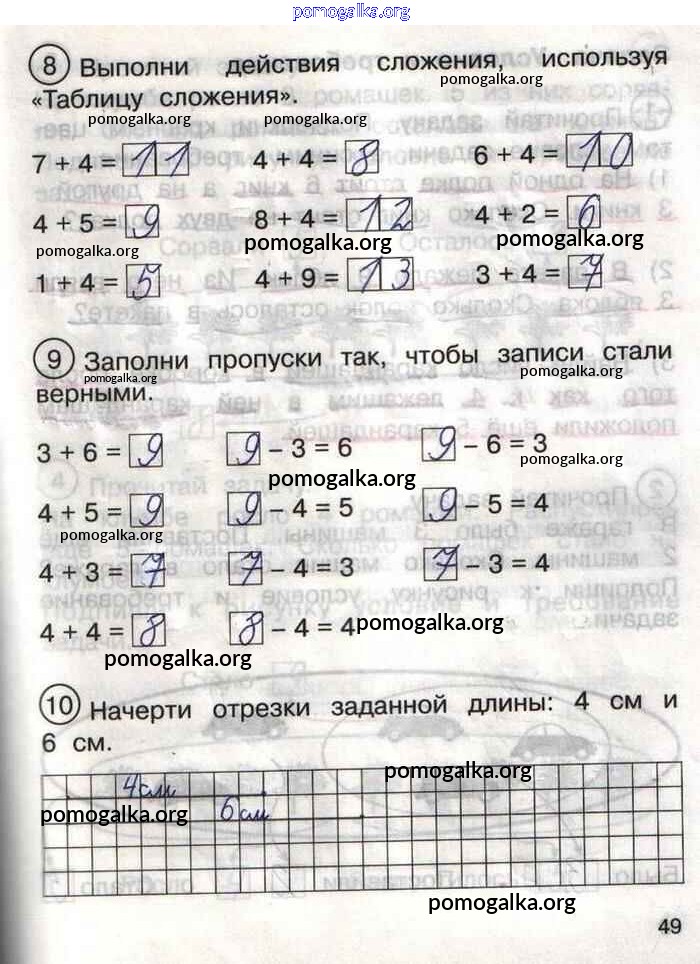 pomogalka.org
8 Выполни действия сложения, используя
pomogalka.org
«Таблицу сложения».
pomogalka.org pomogalka.org
7 + 4 = 11 4 + 4 = 8 6 + 4 = 10
4 + 5 = 9 8 + 4 = 12 4 + 2 = 6
pomogalka.org pomogalka.org pomogalka.org
1 + 4 = 5 4 + 9 = 13 3 + 4 = 7
9 Заполни пропуски так, чтобы записи стали
pomogalka.org pomogalka.org
верными.
3 + 6 = 9 9 – 3 = 6 9 – 6 = 3
pomogalka.org pomogalka.org
4 + 5 = 9 9 – 4 = 5 9 – 5 = 4
pomogalka.org
4 + 3 = 7 7 – 4 = 3 7 – 3 = 4
4 + 4 = 8 8 – 4 = 4 pomogalka.org
pomogalka.org
10 Начерти отрезки заданной длины: 4 см и
6 см.
pomogalka.org
4см
pomogalka.org 6см
pomogalka.org
49